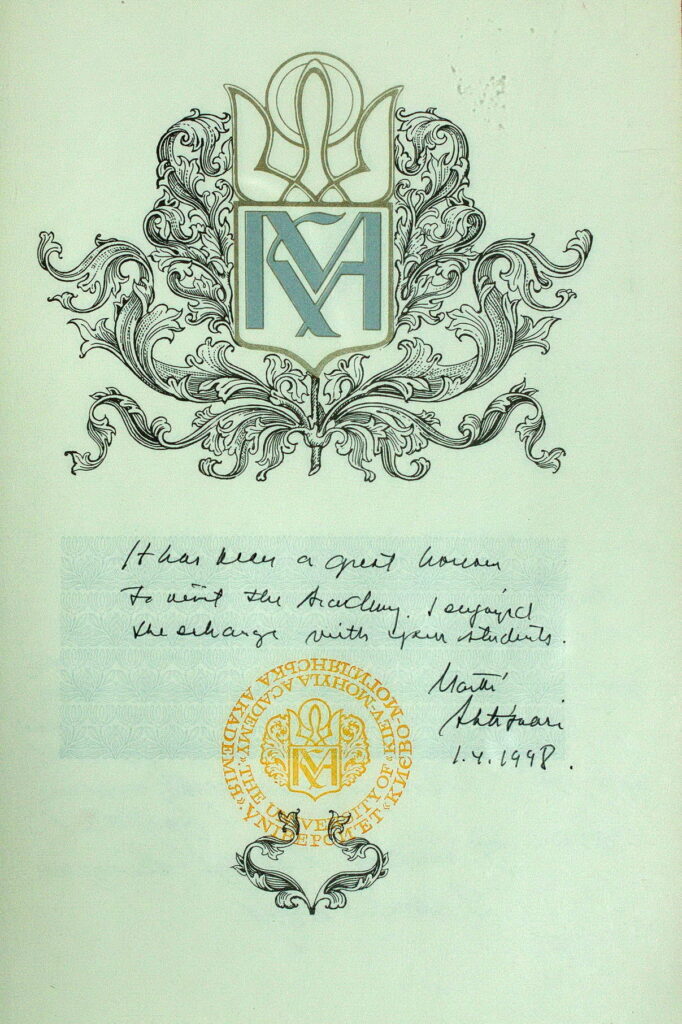 KMA
It has been a great honour
to visit the Academy. I enjoyed
the exchange with your students.
Martti
Ahtisaari
1.4.1998.
THE UNIVERSITY OF «KIEV-MOHYLA ACADEMY»
УНІВЕРСИТЕТ «КИЄВО-МОГИЛЯНСЬКА АКАДЕМІЯ»
KMA